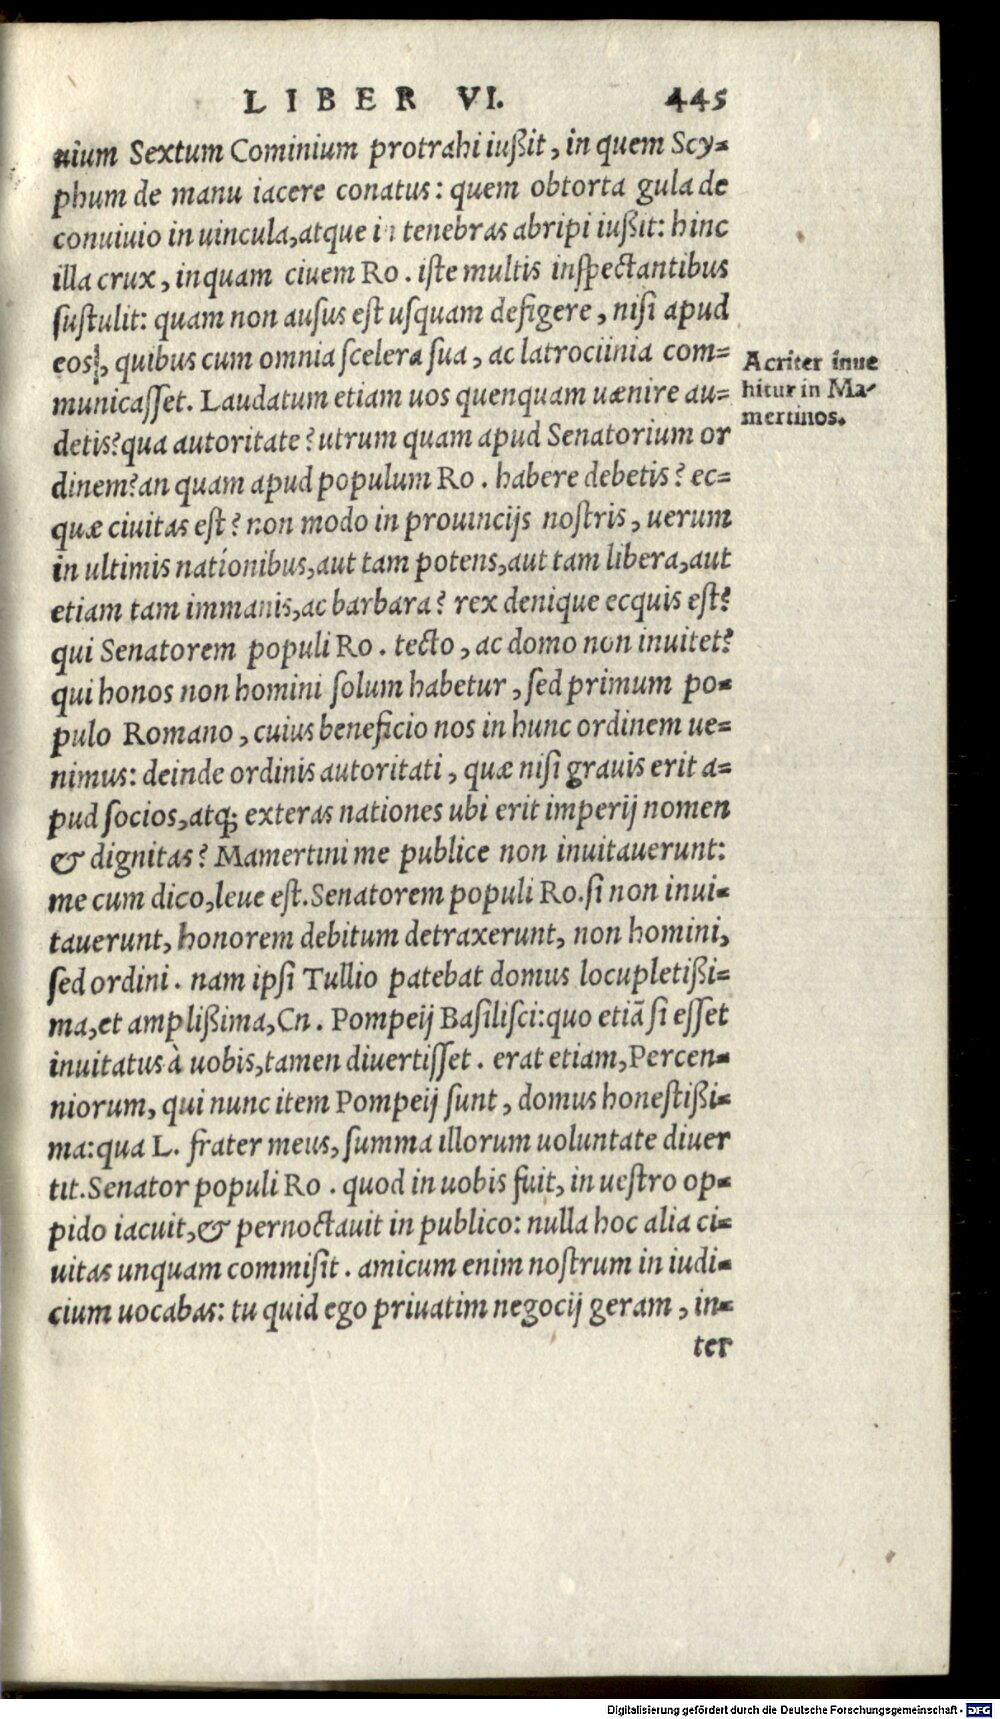 LIBER VI. 445
uium Sextum Cominium protrahi iußit, in quem Scy=
phum de manu iacere conatus: quem obtorta gula de
conuiuio in uincula, atque in tenebras abripi iußit: hinc
illa crux, inquam ciuem Ro. iste multis inspectantibus
sustulit: quam non ausus est usquam defigere, nisi apud
eos, quibus cum omnia scelera sua, ac latrociinia com=
municasset. Laudatum etiam uos quenquam uænire au=
detis? qua autoritate? utrum quam apud Senatorium or
dinem? an quam apud populum Ro. habere debetis? ec=
quæ ciuitas est? non modo in prouincijs nostris, uerum
in ultimis nationibus, aut tam potens, aut tam libera, aut
etiam tam immanis, ac barbara? rex denique ecquis est?
qui Senatorem populi Ro. tecto, ac domo non inuitet?
qui honos non homini solum habetur, sed primum po=
pulo Romano, cuius beneficio nos in hunc ordinem ue=
nimus: deinde ordinis autoritati, quæ nisi grauis erit a=
pud socios, atq; exteras nationes ubi erit imperij nomen
& dignitas? Mamertini me publice non inuitauerunt:
me cum dico, leue est. Senatorem populi Ro. si non inui=
tauerunt, honorem debitum detraxerunt, non homini,
sed ordini. nam ipsi Tullio patebat domus locupletißi=
ma, et amplißima, Cn. Pompeij Basilisci: quo etiā si esset
inuitatus à uobis, tamen diuertisset. erat etiam, Percen=
niorum, qui nunc item Pompeij sunt, domus honestißi=
ma: qua L. frater meus, summa illorum uoluntate diuer
tit. Senator populi Ro. quod in uobis fuit, in uestro op=
pido iacuit, & pernoctauit in publico: nulla hoc alia ci=
uitas unquam commisit. amicum enim nostrum in iudi=
cium uocabas: tu quid ego priuatim negocij geram, in=
ter
Acriter inue
hitur in Ma-
mertinos.
Digitalisierung gefördert durch die Deutsche Forschungsgemeinschaft - DFG